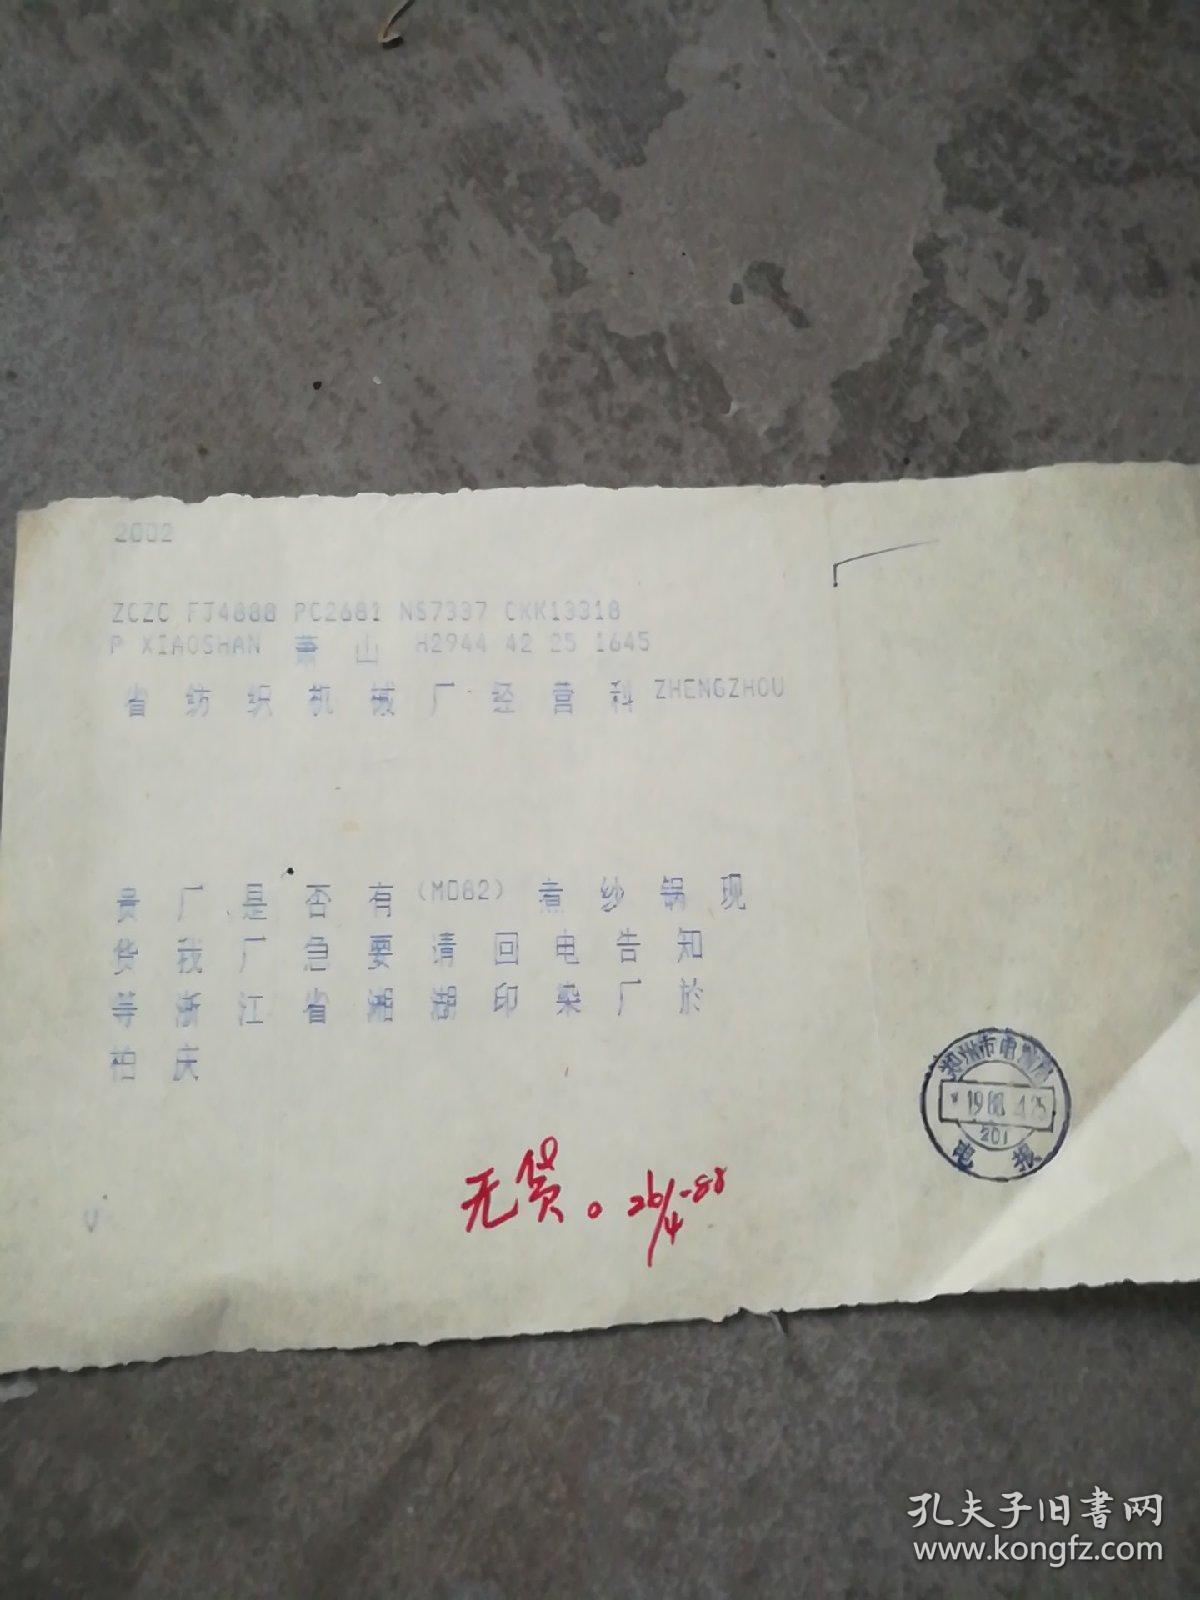 2002
ZCZC FJ4888 PC2681 NS7337 CKK13318
P XIAOSHAN 萧山 H2944 42 25 1645
省纺织机械厂经营科 ZHENGZHOU
贵厂是否有(M082)煮纱锅现
货我厂急要请回电告知
等浙江省湘湖印染厂於
柏庆
无货。26/4-88
郑州市电报局
1988.4.25
201
电报
V
孔夫子旧书网
www.kongfz.com